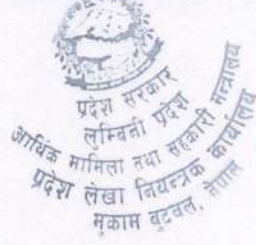 प्रदेश सरकार
लुम्बिनी प्रदेश
आर्थिक मामिला तथा सहकारी मन्त्रालय
प्रदेश लेखा नियन्त्रक कार्यालय
मुकाम बुटवल, नेपाल